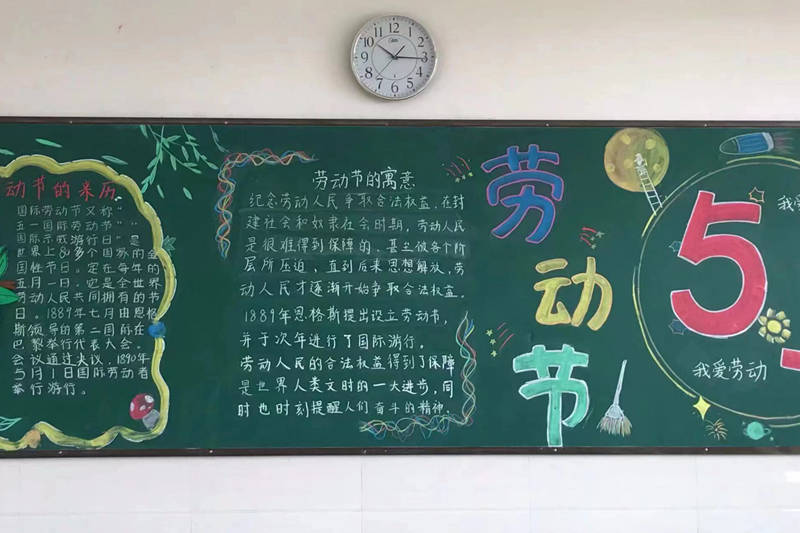 动节的来历
国际劳动节又称"
五一国际劳动节""
国际示威游行日"是
世界上80多个国家的全
国性节日。定在每年的
五月一日。它是全世界
劳动人民共同拥有的节
日。1889年七月由恩格
斯领导的第二国际在
巴黎举行代表大会。
会议通过决议,1890年
5月1日国际劳动者
举行游行。
劳动节的寓意
纪念劳动人民争取合法权益。在封
建社会和奴隶社会时期,劳动人民
是很难得到保障的、甚至被各个阶
层所压迫、直到后来思想解放,劳
动人民才逐渐开始争取合法权益。
1889年恩格斯提出设立劳动节,
并于次年进行了国际游行。
劳动人民的合法权益得到了保障
是世界人类文明的一大进步,同
时也时刻提醒人们奋斗的精神。
劳
动
节
5.
我爱劳动